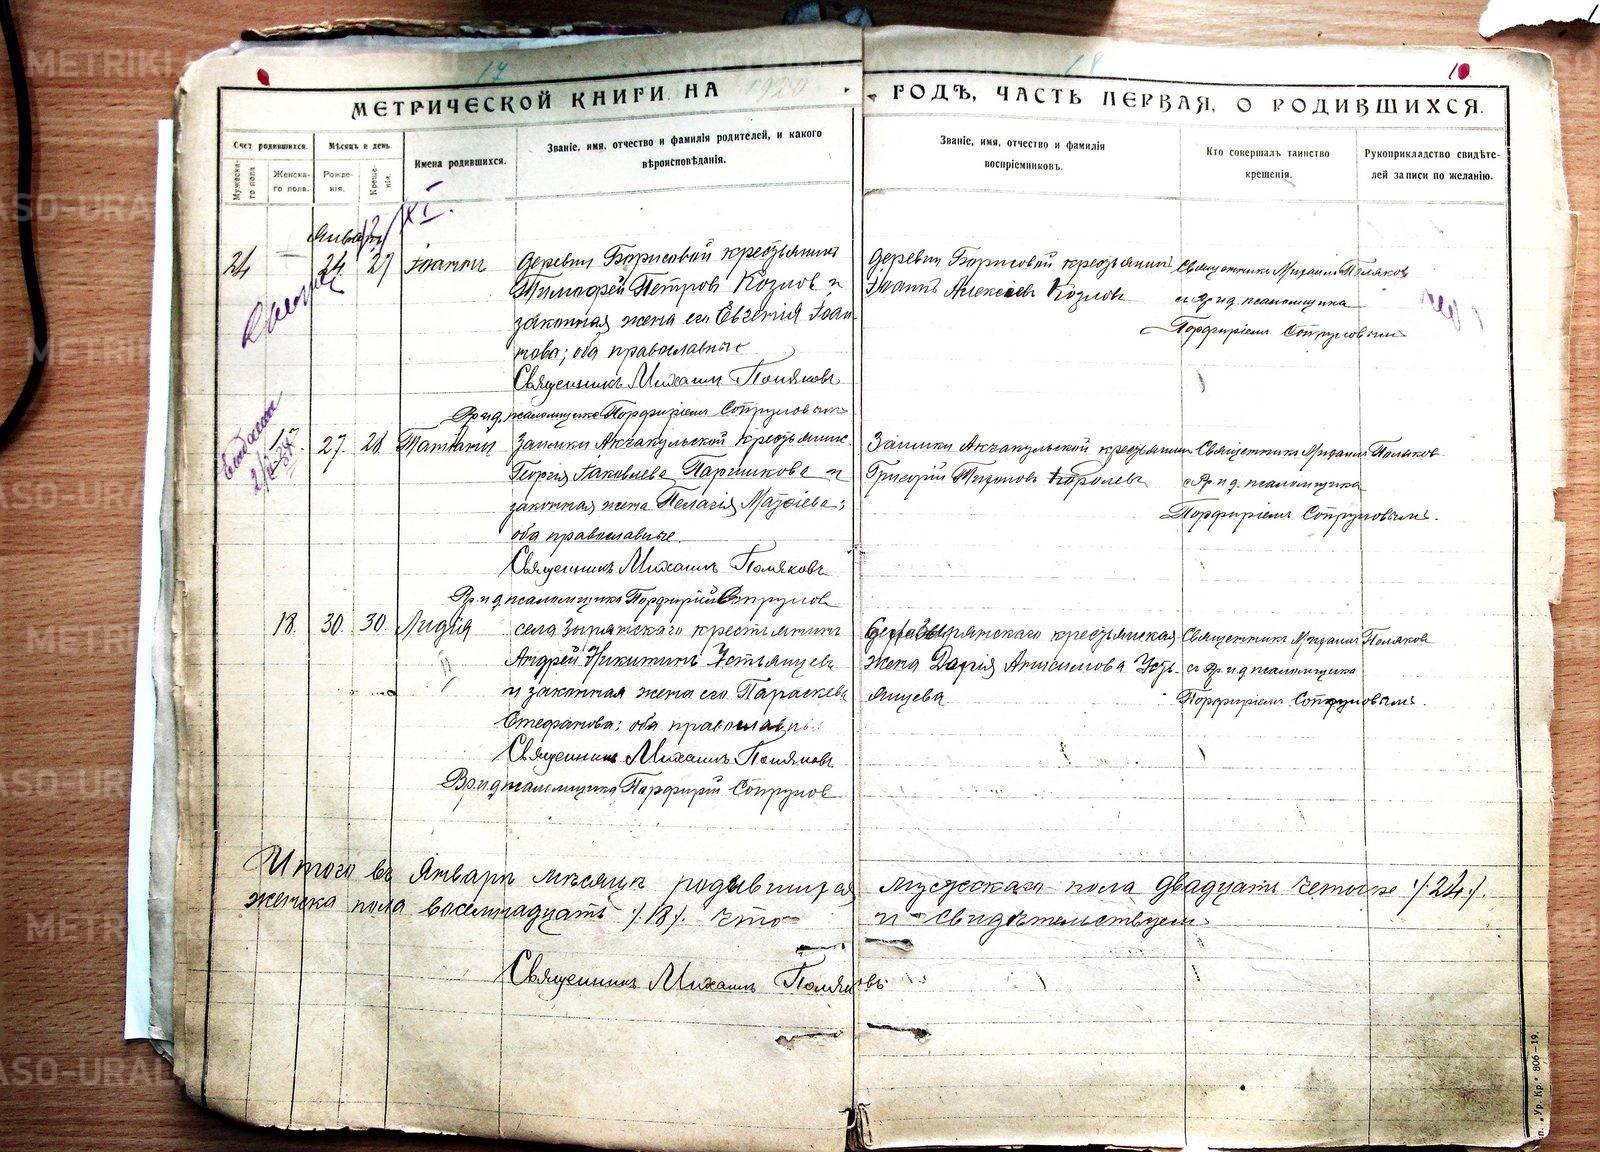 17
18
10
МЕТРИЧЕСКОЙ КНИГИ НА 1920 ГОДЪ, ЧАСТЬ ПЕРВАЯ, О РОДИВШИХСЯ.
Счет родившихся.
Мужеска-го пола
Женска-го пола.
Мѣсяцъ и день.
Рожде-нія.
Креще-нія.
Имена родившихся.
Званіе, имя, отчество и фамилія родителей, и какого
вѣроисповѣданія.
Званіе, имя, отчество и фамилія
воспріемниковъ.
Кто совершалъ таинство
крещенія.
Рукоприкладство свидѣте-
лей записи по желанію.
Январь
24 — 24 27 Іоаннъ
деревни Борисовой крестьянинъ
Тимофей Петровъ Козлов и
законная жена его Евгенія Іоан-
нова; оба православные
Священникъ Михаилъ Поляковъ
Вр. и д. псаломщика Порфирій Сопрунов
деревни Борисовой крестьянинъ
Іоаннъ Алексѣевъ Козловъ
Священникъ Михаилъ Поляков
съ Вр. и д. псаломщика
Порфиріемъ Сопруновымъ
17. 27. 28. Татіана
Заимки Акчакульской крестьянинъ
Георгій Іаковлевъ Паршуковъ и
законная жена Пелагія Матѳіева;
оба православные.
Священникъ Михаилъ Поляковъ
Вр. и д. псаломщика Порфирій Сопрунов
Заимки Акчакульской крестьянинъ
Григорій Тихоновъ Королевъ
Священникъ Михаилъ Поляков
с Вр. и д. псаломщика
Порфиріемъ Сопруновымъ.
18. 30. 30. Лидія
села Зырянскаго крестьянинъ
Андрей Никитинъ Устьянцевъ
и законная жена его Параскева
Стефанова; оба православны.
Священникъ Михаилъ Поляковъ
Вр. и д псаломщика Порфирій Сопрунов
Села Зырянскаго крестьянская
жена Дарія Анисимова Усть-
янцева
Священникъ Михаилъ Поляков
съ Вр. и д псаломщика
Порфиріемъ Сопруновымъ.
Итого въ Январѣ мѣсяцѣ родившихся мужскаго пола двадцать четыре /24/.
женска пола восемнадцать /18/. Что и свидѣтельствуемъ
Священникъ Михаилъ Поляковъ
„Ур. Кр“ 806—19.
METRIKI
ASO-URAL